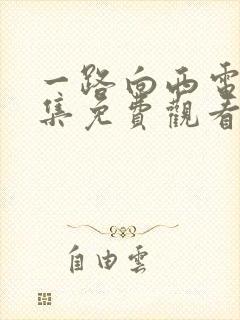 一路向西電
集免費觀看
自由雲